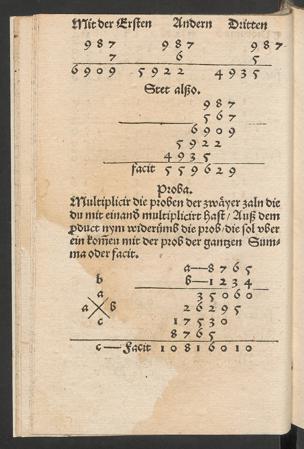 Mit der Ersten Andern Dritten
9 8 7 9 8 7 9 8 7
7 6 5
6 9 0 9 5 9 2 2 4 9 3 5
Stet alßo.
9 8 7
5 6 7
6 9 0 9
5 9 2 2
4 9 3 5
facit 5 5 9 6 2 9
Proba.
Multiplicir die proben der zwäyer zaln die
du mit einand multiplicirt hast / Auß dem
ꝓduct nym widerūmb die prob / die sol vber
ein kom̄en mit der prob der gantzen Sum-
ma oder facit.
a—8 7 6 5
b b—1 2 3 4
a 3 5 0 6 0
a b 2 6 2 9 5
c 1 7 5 3 0
8 7 6 5
c — Facit 1 0 8 1 6 0 1 0